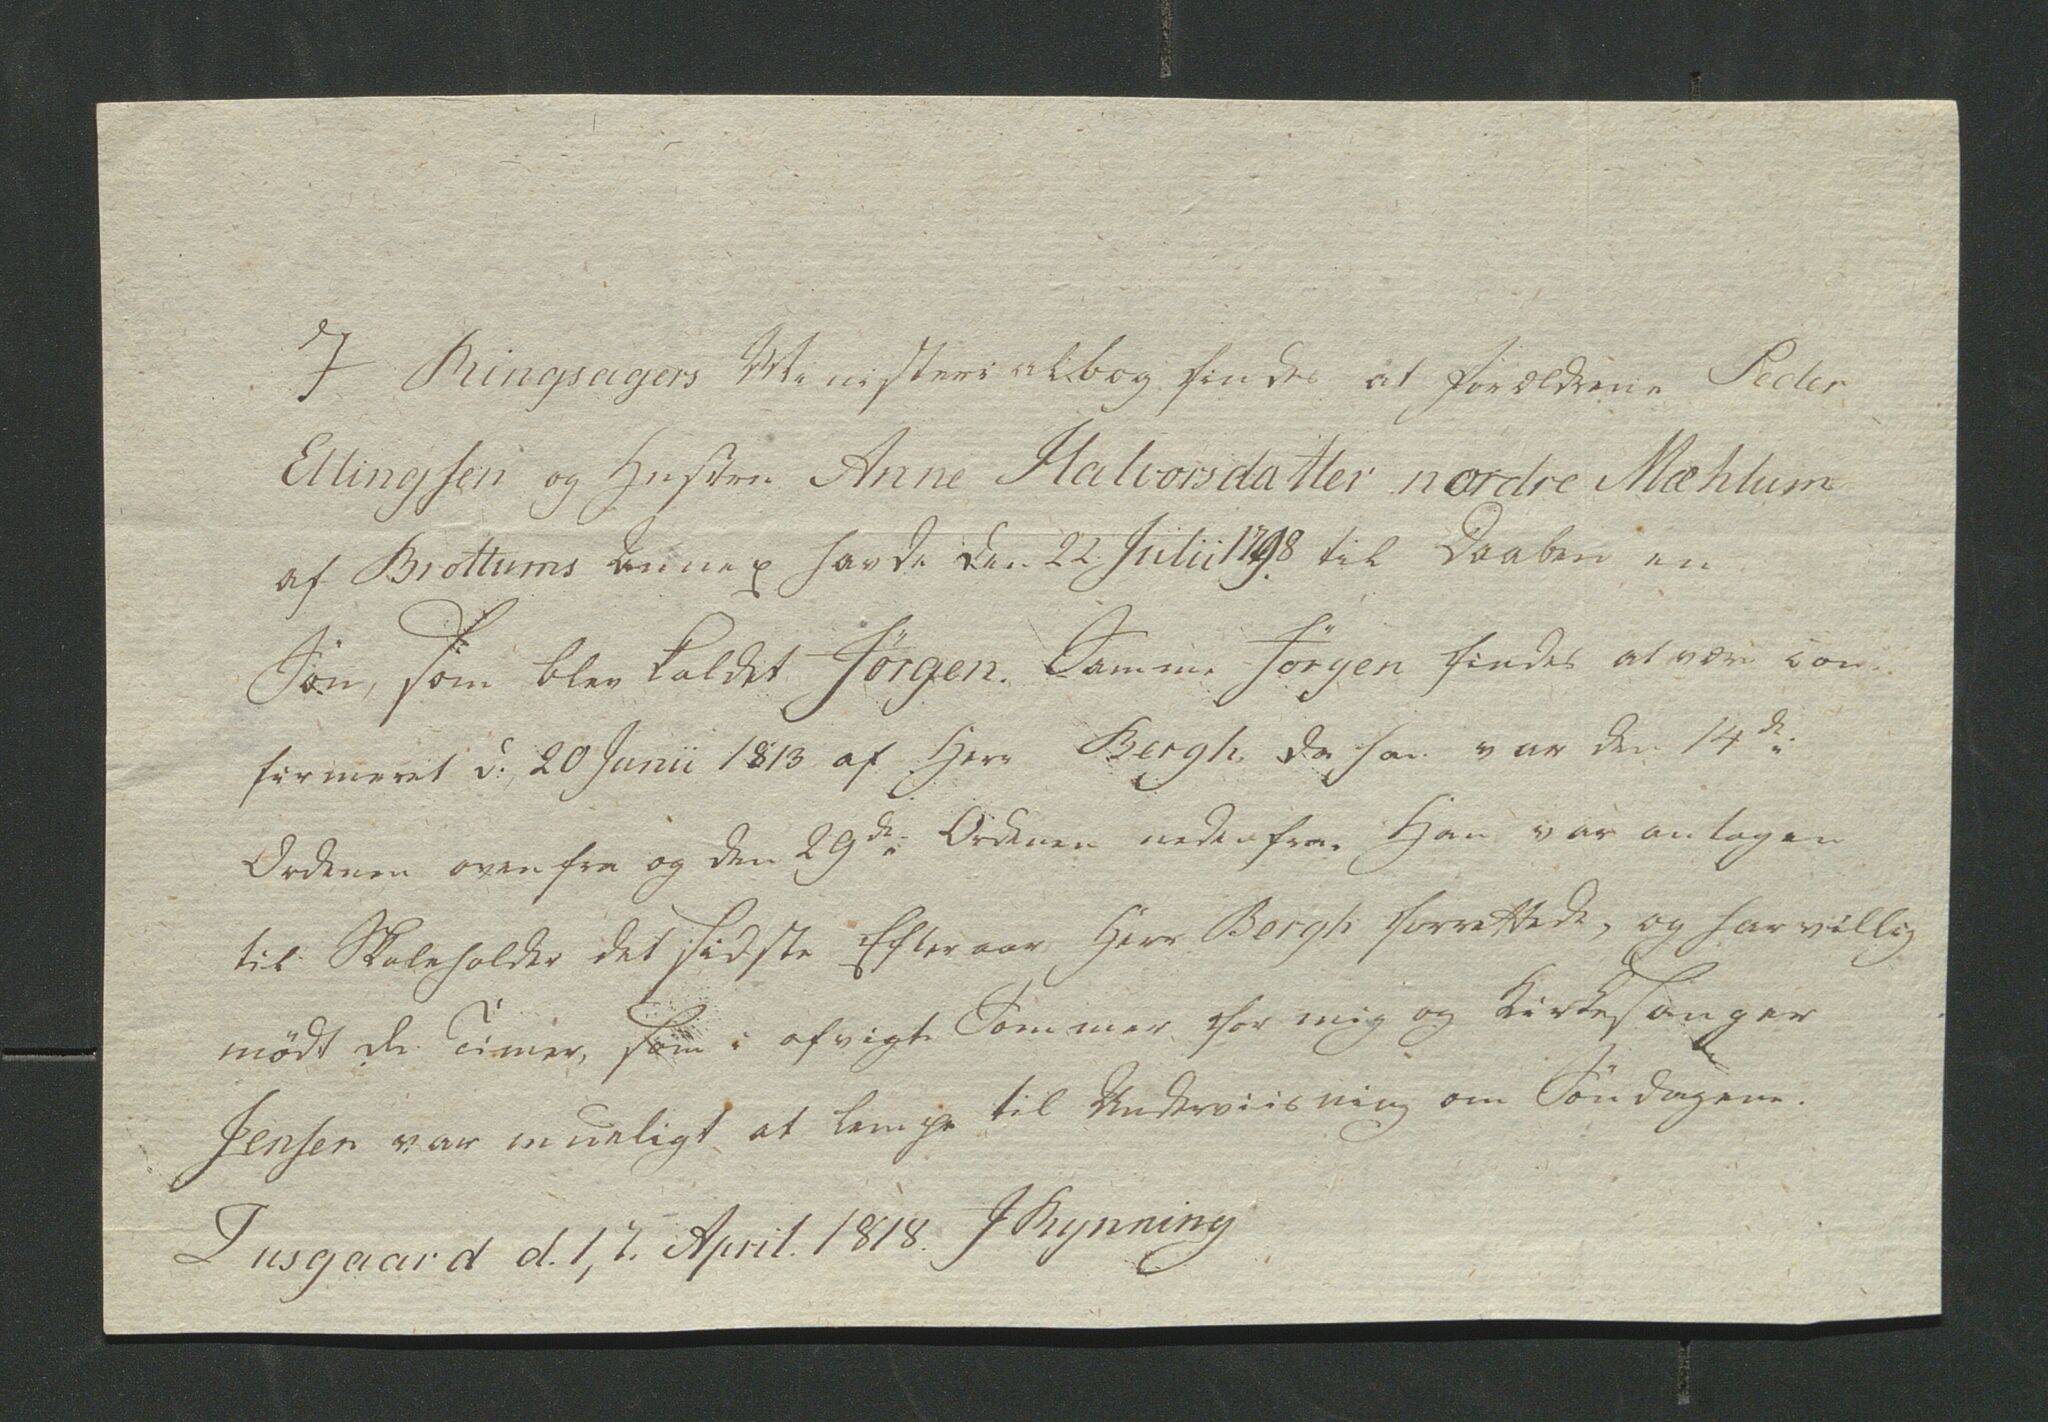 I Ringsagers Ministerialbog findes at Forældrene Peder
Ellingsen og Hustru Anne Halvorsdatter nordre Mæhlum
af Brøttums Annex havde den 22 Julii 1798 til Daaben en
Søn, som blev kaldet Jørgen. Samme Jörgen findes at være con-
firmeret d: 20 Junii 1813 af Herr Bergh, da han var den 14de i
Ordenen ovenfra og den 29de i Ordenen nedenfra. Han var antagen
til Skoleholder det sidste Efteraar Herr Bergh forrettede, og har villig
mødt de Timer, som i afvigte Sommer for mig og Kirkesanger
Jensen var mueligt at lempe til Underviisning om Söndagene.
Tusgaard d. 17. April. 1818. J Rynning